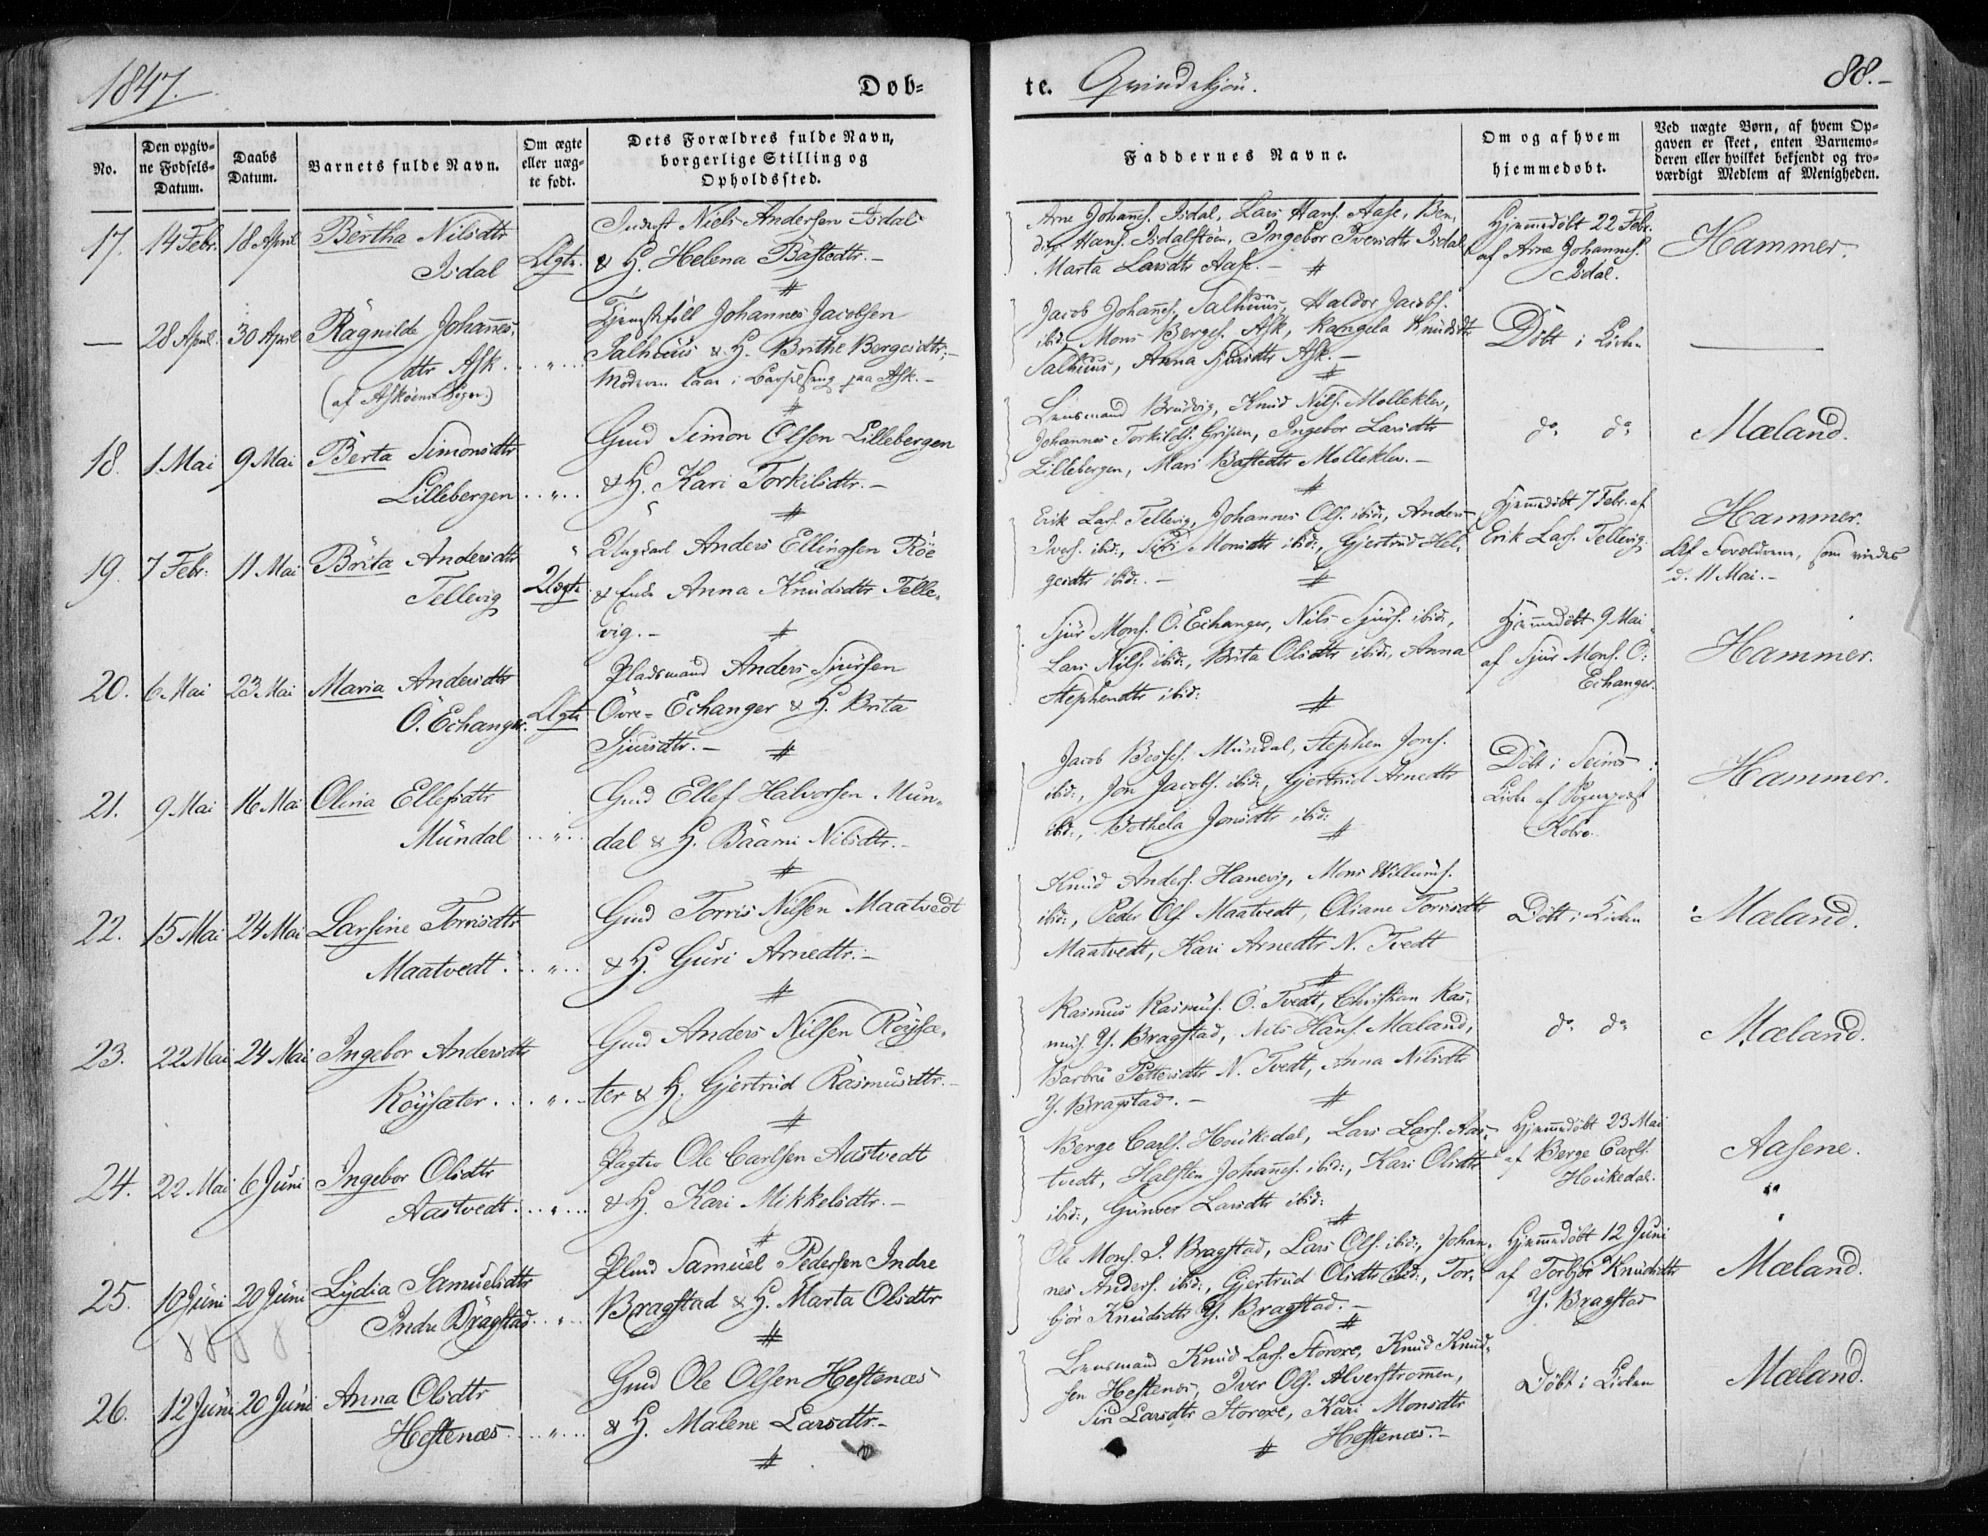 1847.
Døb=
te. Qvindekjön.
88.-
No.
Den opgiv=
ne Fødsels=
Datum.
Daabs
Datum.
Barnets fulde Navn.
Om ægte
eller uæg=
te født.
Dets Forældres fulde Navn,
borgerlige Stilling og
Opholdssted.
Faddernes Navne.
Om og af hvem
hjemmedøbt.
Ved uægte Børn, af hvem Op=
gaven er skeet, enten Barnemo=
deren eller hvilket bekjendt og tro=
værdigt Medlem af Menigheden.
17. 14 Febr. 18 April Bertha Nilsdtr
Isdal
Ægte.
Niels Andersen Isdal
& H. Helena Bastedtr.-
Arne Johannes. Isdal, Lars Hans. Aase, Ben-
Hans. Isdalstöen, Ingebor Iversdtr Isdal
Marta Larsdtr Aase.-
Hjemmedöbt 22 Febr.
af Arne Johannes.
Isdal.
Hammer.
— 28 April 30 April Ragnilde Johannes.
dtr Ask.
(af Asköens Sogn.)
Johannes Jacobsen
Salhuus & H. Brithe Bergesdtr,-
Moderen laae i Barselseng paa Ask.-
Jacob Johannes. Salhuus, Haldor Jacobs.
ibd. Mons Berges. Ask, Rangela Knudsdtr
Salhuus, Anna Sjursdtr Ask.-
Döbt i Kirken
18. 1 Mai 9 Mai Berta Simonsdtr
Lillebergen
Gmd Simon Olsen Lillebergen
& H. Kari Torkilsdtr.-
Lensmand Brudvig, Knud Nils. Mollekler,
Johannes Torkilds. Gripen, Ingebor Larsdtr
Lillebergen, Mari Bastedtr Mollekler.-
do do
Mæland.
19. 7 Febr. 11 Mai Brita Andersdtr
Tellevig
Uægte.
Ungkarl Anders Ellingsen Röe
& Anna Knudsdtr Telle-
vig.-
Erik Lars. Tellevig, Johannes Ols. ibid:, Anders
Ivers. ibd:, Siri Monsdtr ibid:, Gjertrud Hel-
gesdtr ibid:.-
Hjemmedöbt 7 Febr. af
Erik Lars. Tellevig
Hammer.
Af Forældrene, som viedes
d. 11 Mai.-
20. 6 Mai 23 Mai Maria Andersdtr
Ö. Echanger.
Ægte
Pladsmand Anders Sjursen
Övre- Echanger & H. Brita
Sjursdtr.-
Sjur Mons. Ö. Echanger, Nils Sjurs. ibid:,
Lars Nils. ibid:, Brita Olsdtr ibid:, Anna
Stephensdtr ibid:
Hjemmedöbt 9 Mai
af Sjur Mons. Ö:
Echanger.
Hammer.
21. 9 Mai 16 Mai Olina Ellefsdtr
Mundal
Gmd Ellef Halvorsen Mun-
dal & H. Baarni Nilsdtr.-
Jacob Mundal, Stephen Jons.
ibid:, Jon Jacobs. ibid:, Gjertrud Arnedtr
ibd:, Bothela Jonsdtr ibid:
Döbt i Seims
Kirke af Sognepræst
Kobro.
Hammer.
22. 15 Mai 24 Mai Larsine Torrisdtr
Maatvedt.
Gmd Torris Nilsen Maatvedt
& H. Guri Arnedtr.-
Knud Anders. Hanevig, Mons Willums.
ibd:, Peder Ols Maatvedt, Oliane Torrisdtr
Maatvedt, Kari Arnedtr N. Tvedt
Döbt i Kirken
Mæland.
23. 22 Mai 24 Mai Ingebor Andersdtr
Röysæter.
Gmd Anders Nilsen Röysæ-
ter & H. Gjertrud Rasmusdtr.-
Rasmus Rasmus. Ö. Tvedt, Christian Ras-
mus. Y. Bragstad, Nils Hans. Mæland,
Barbru Pettersdtr N. Tvedt, Anna Nilsdtr
Y. Bragstad.-
do do
Mæland.
24. 22 Mai 6 Juni Ingebor Olsdtr
Aastvedt.
Ole Carlsen Aastvedt
& H. Kari Mikkelsdtr.-
Berge Carls. Houkedal, Lars Lars. Aas-
tvedt, Halsten Johannes. ibid:, Kari Olsdtr
ibid:, Gunver Larsdtr ibid:
Hjemmedöbt 23 Mai
af Berge Carls.
Houkedal.
Aasene.
25. 10 Juni 20 Juni Lydia Samuelsdtr
Indre Bragstad
Plmd Samuel Pedersen Indre
Bragstad & H. Marta Olsdtr
Ole Mons. I. Bragstad, Lars Ols. ibid:, Johan-
nes Anders. ibid:, Gjertrud Olsdtr ibid:, Tor-
björ Knudsdtr Y. Bragstad.-
Hjemmedöbt 12 Juni
af Torbjör Knudsdtr
Y. Bragstad
Mæland.
26. 12 Juni 20 Juni Anna Olsdtr
Hestenæs
Gmd Ole Olsen Hestenæs
& H. Malene Larsdtr.-
Lensmand Knud Lars. Storoxe, Knud Knud-
sen Hestenæs, Iver Ols. Alverstrommen,
Siri Larsdtr Storoxe, Kari Monsdtr
Hestenæs.-
Döbt i Kirken
Mæland.